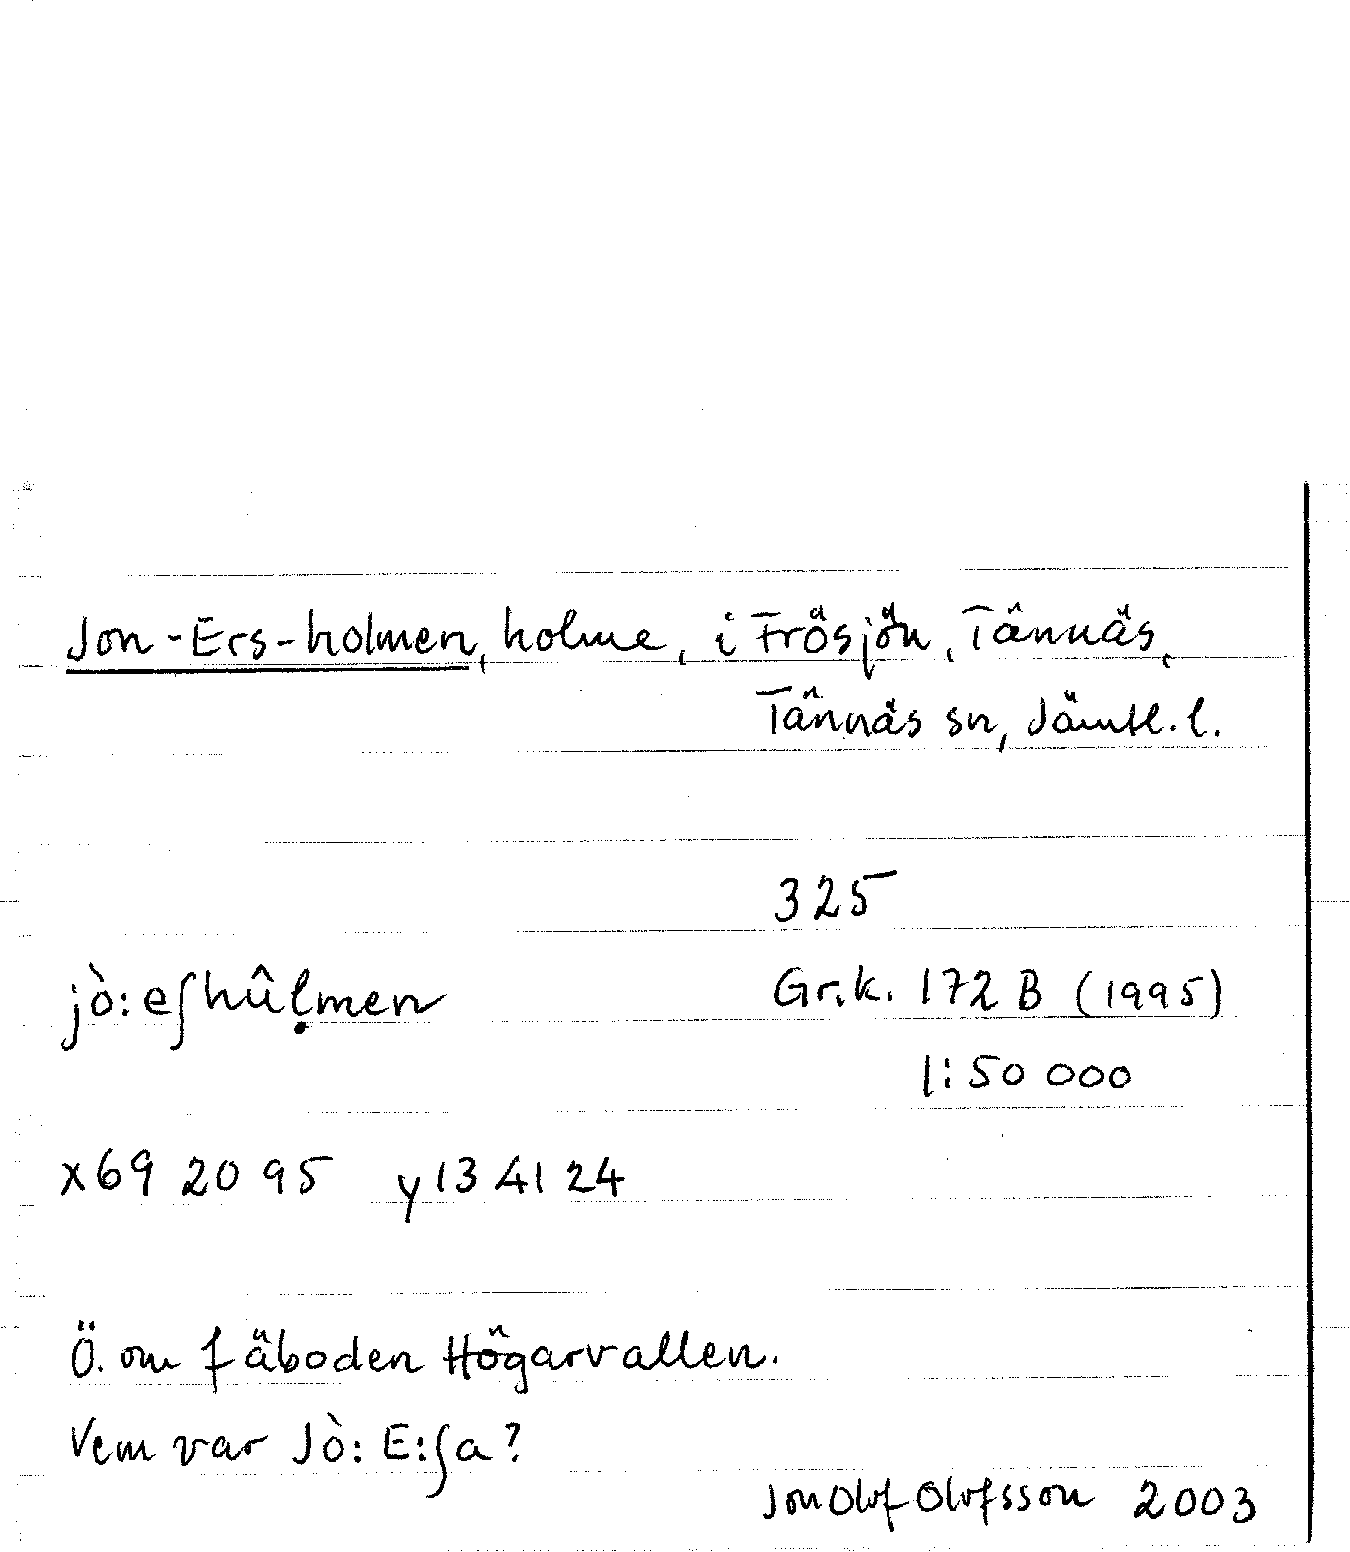 Jon-Ers-holmen, holme, i Frösjön, Tännäs,
Tännäs sn, Jämtl. l.
325
jò: eʃhûḷmen
Gr.k. 172 B (1995)
1:50 000
x69 20 95 y13 41 24
Ö. om fäboden Högarvallen.
Vem var Jò: E:ʃa?
Jon Olof Olofsson 2003